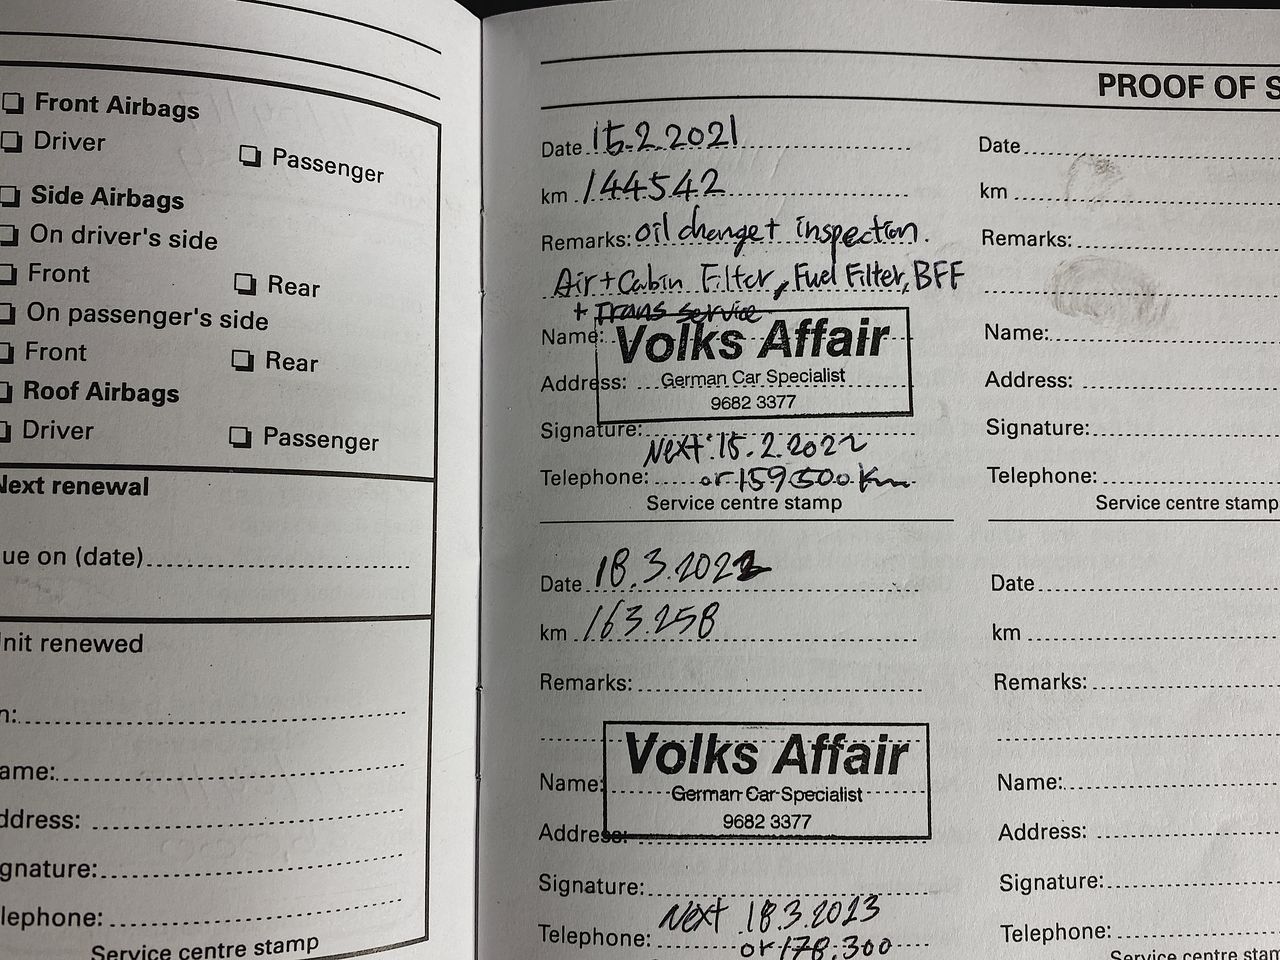 Front Airbags
Driver
Passenger
Side Airbags
On driver's side
Front
Rear
On passenger's side
Front
Rear
Roof Airbags
Driver
Passenger
Next renewal
ue on (date)
nit renewed
n:
ame:
ddress:
gnature:
lephone:
Service centre stamp
PROOF OF S
Date 15.2.2021
km 144542
Remarks: oil change + inspection.
Air + Cabin Filter, Fuel Filter, BFF
+ Trans service
Name:
Volks Affair
Address:
German Car Specialist
9682 3377
Signature:
Next: 15.2.2022
Telephone: or 159500 Km.
Service centre stamp
Date 18.3.2022
km 163.258
Remarks:
Volks Affair
Name:
German Car Specialist
9682 3377
Address:
Signature:
Next 18.3.2023
Telephone: or 178.300
Date
km
Remarks:
Name:
Address:
Signature:
Telephone:
Service centre stamp
Date
km
Remarks:
Name:
Address:
Signature:
Telephone:
Service centre stam